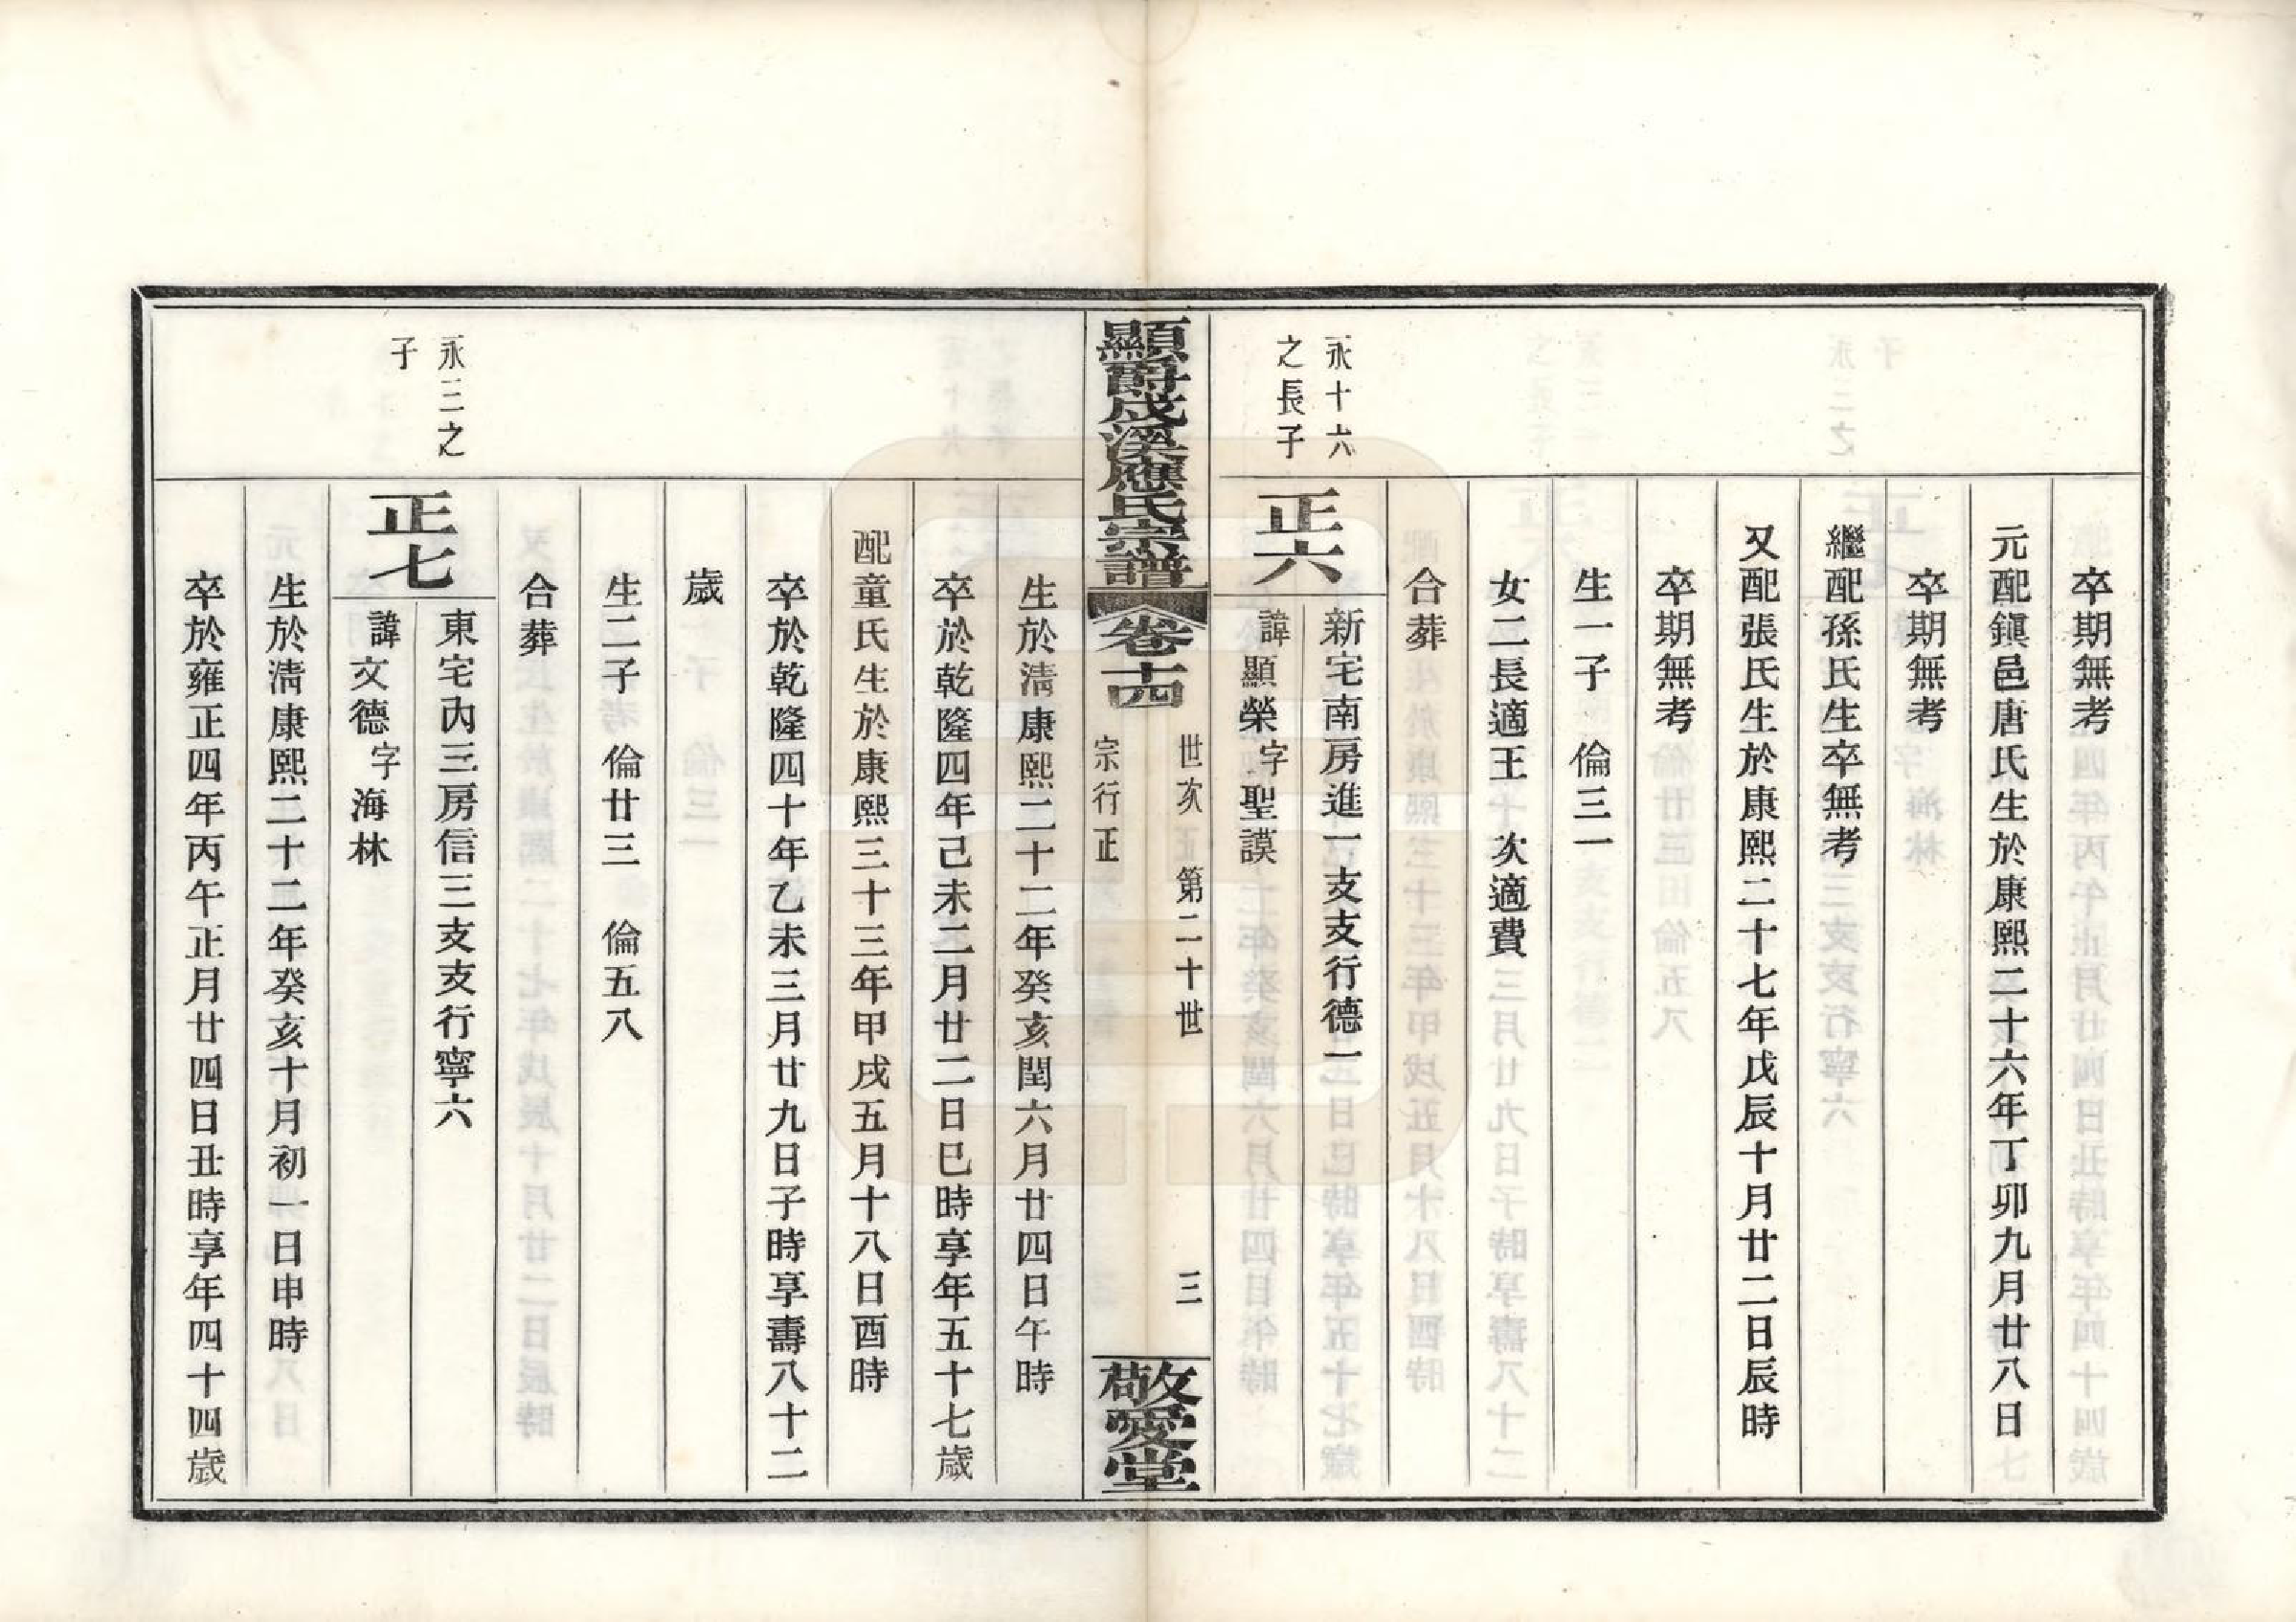 卒期無考
元配鎭邑唐氏生於康熙二十六年丁卯九月廿八日
卒期無考
繼配孫氏生卒無考
又配張氏生於康熙二十七年戊辰十月廿二日辰時
卒期無考
生一子 倫三一
女二長適王 次適費
合葬
永十六
之長子
正六
新宅南房進一支支行德一
諱顯榮字聖謨
顯爵成溪應氏宗譜 卷十四
世次 第二十世 三
宗行正
敬愛堂
生於淸康熙二十二年癸亥閏六月廿四日午時
卒於乾隆四年己未二月廿二日巳時享年五十七歲
配童氏生於康熙三十三年甲戌五月十八日酉時
卒於乾隆四十年乙未三月廿九日子時享壽八十二
歲
生二子 倫廿三 倫五八
合葬
永三之
子
正七
東宅內三房信三支支行寧六
諱文德字海林
生於淸康熙二十二年癸亥十月初一日申時
卒於雍正四年丙午正月廿四日丑時享年四十四歲